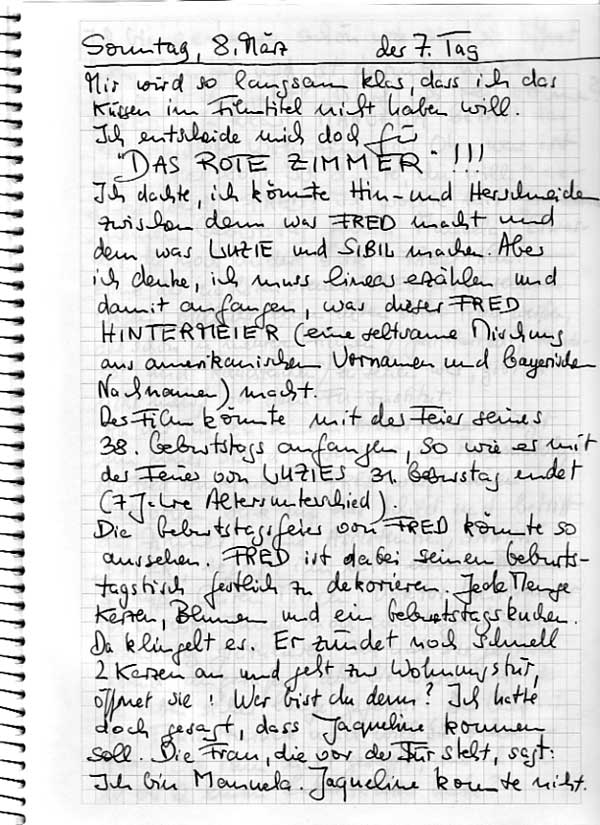 Sonntag, 8. März der 7. Tag
Mir wird so langsam klar, dass ich das
Küssen im Filmtitel nicht haben will.
Ich entscheide mich doch für
"DAS ROTE ZIMMER" !!!
Ich dachte, ich könnte Hin- und Herschneiden
zwischen dem was FRED macht und
dem was LUZIE und SIBIL machen. Aber
ich denke, ich muss linear erzählen und
damit anfangen, was dieser FRED
HINTERMEIER (eine seltsame Mischung
aus amerikanischen Vornamen und bayerischen
Nachnamen) macht.
Der Film könnte mit der Feier seines
38. Geburtstags anfangen, so wie es mit
der Feier von LUZIES 31. Geburstag endet
(7 Jahre Altersunterschied).
Die Geburtstagsfeier von FRED könnte so
aussehen. FRED ist dabei seinen Geburts-
tagstisch festlich zu dekorieren. Jede Menge
Kerzen, Blumen und ein Geburtstagskuchen.
Da klingelt es. Er zündet noch schnell
2 Kerzen an und geht zur Wohnungstür,
öffnet sie! Wer bist du denn? Ich hatte
doch gesagt, dass Jaqueline kommen
soll. Die Frau, die vor der Tür steht, sagt:
Ich bin Manuela. Jaqueline konnte nicht.